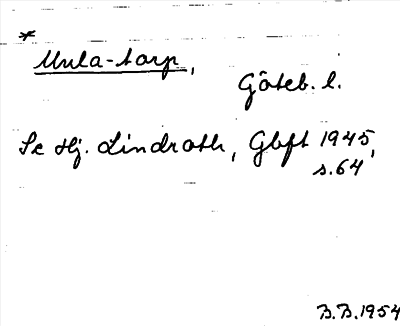 *
Mula-torp,
Göteb. l.
Se Hj. Lindroth, Gbft 1945,
s. 64
B.B. 1954